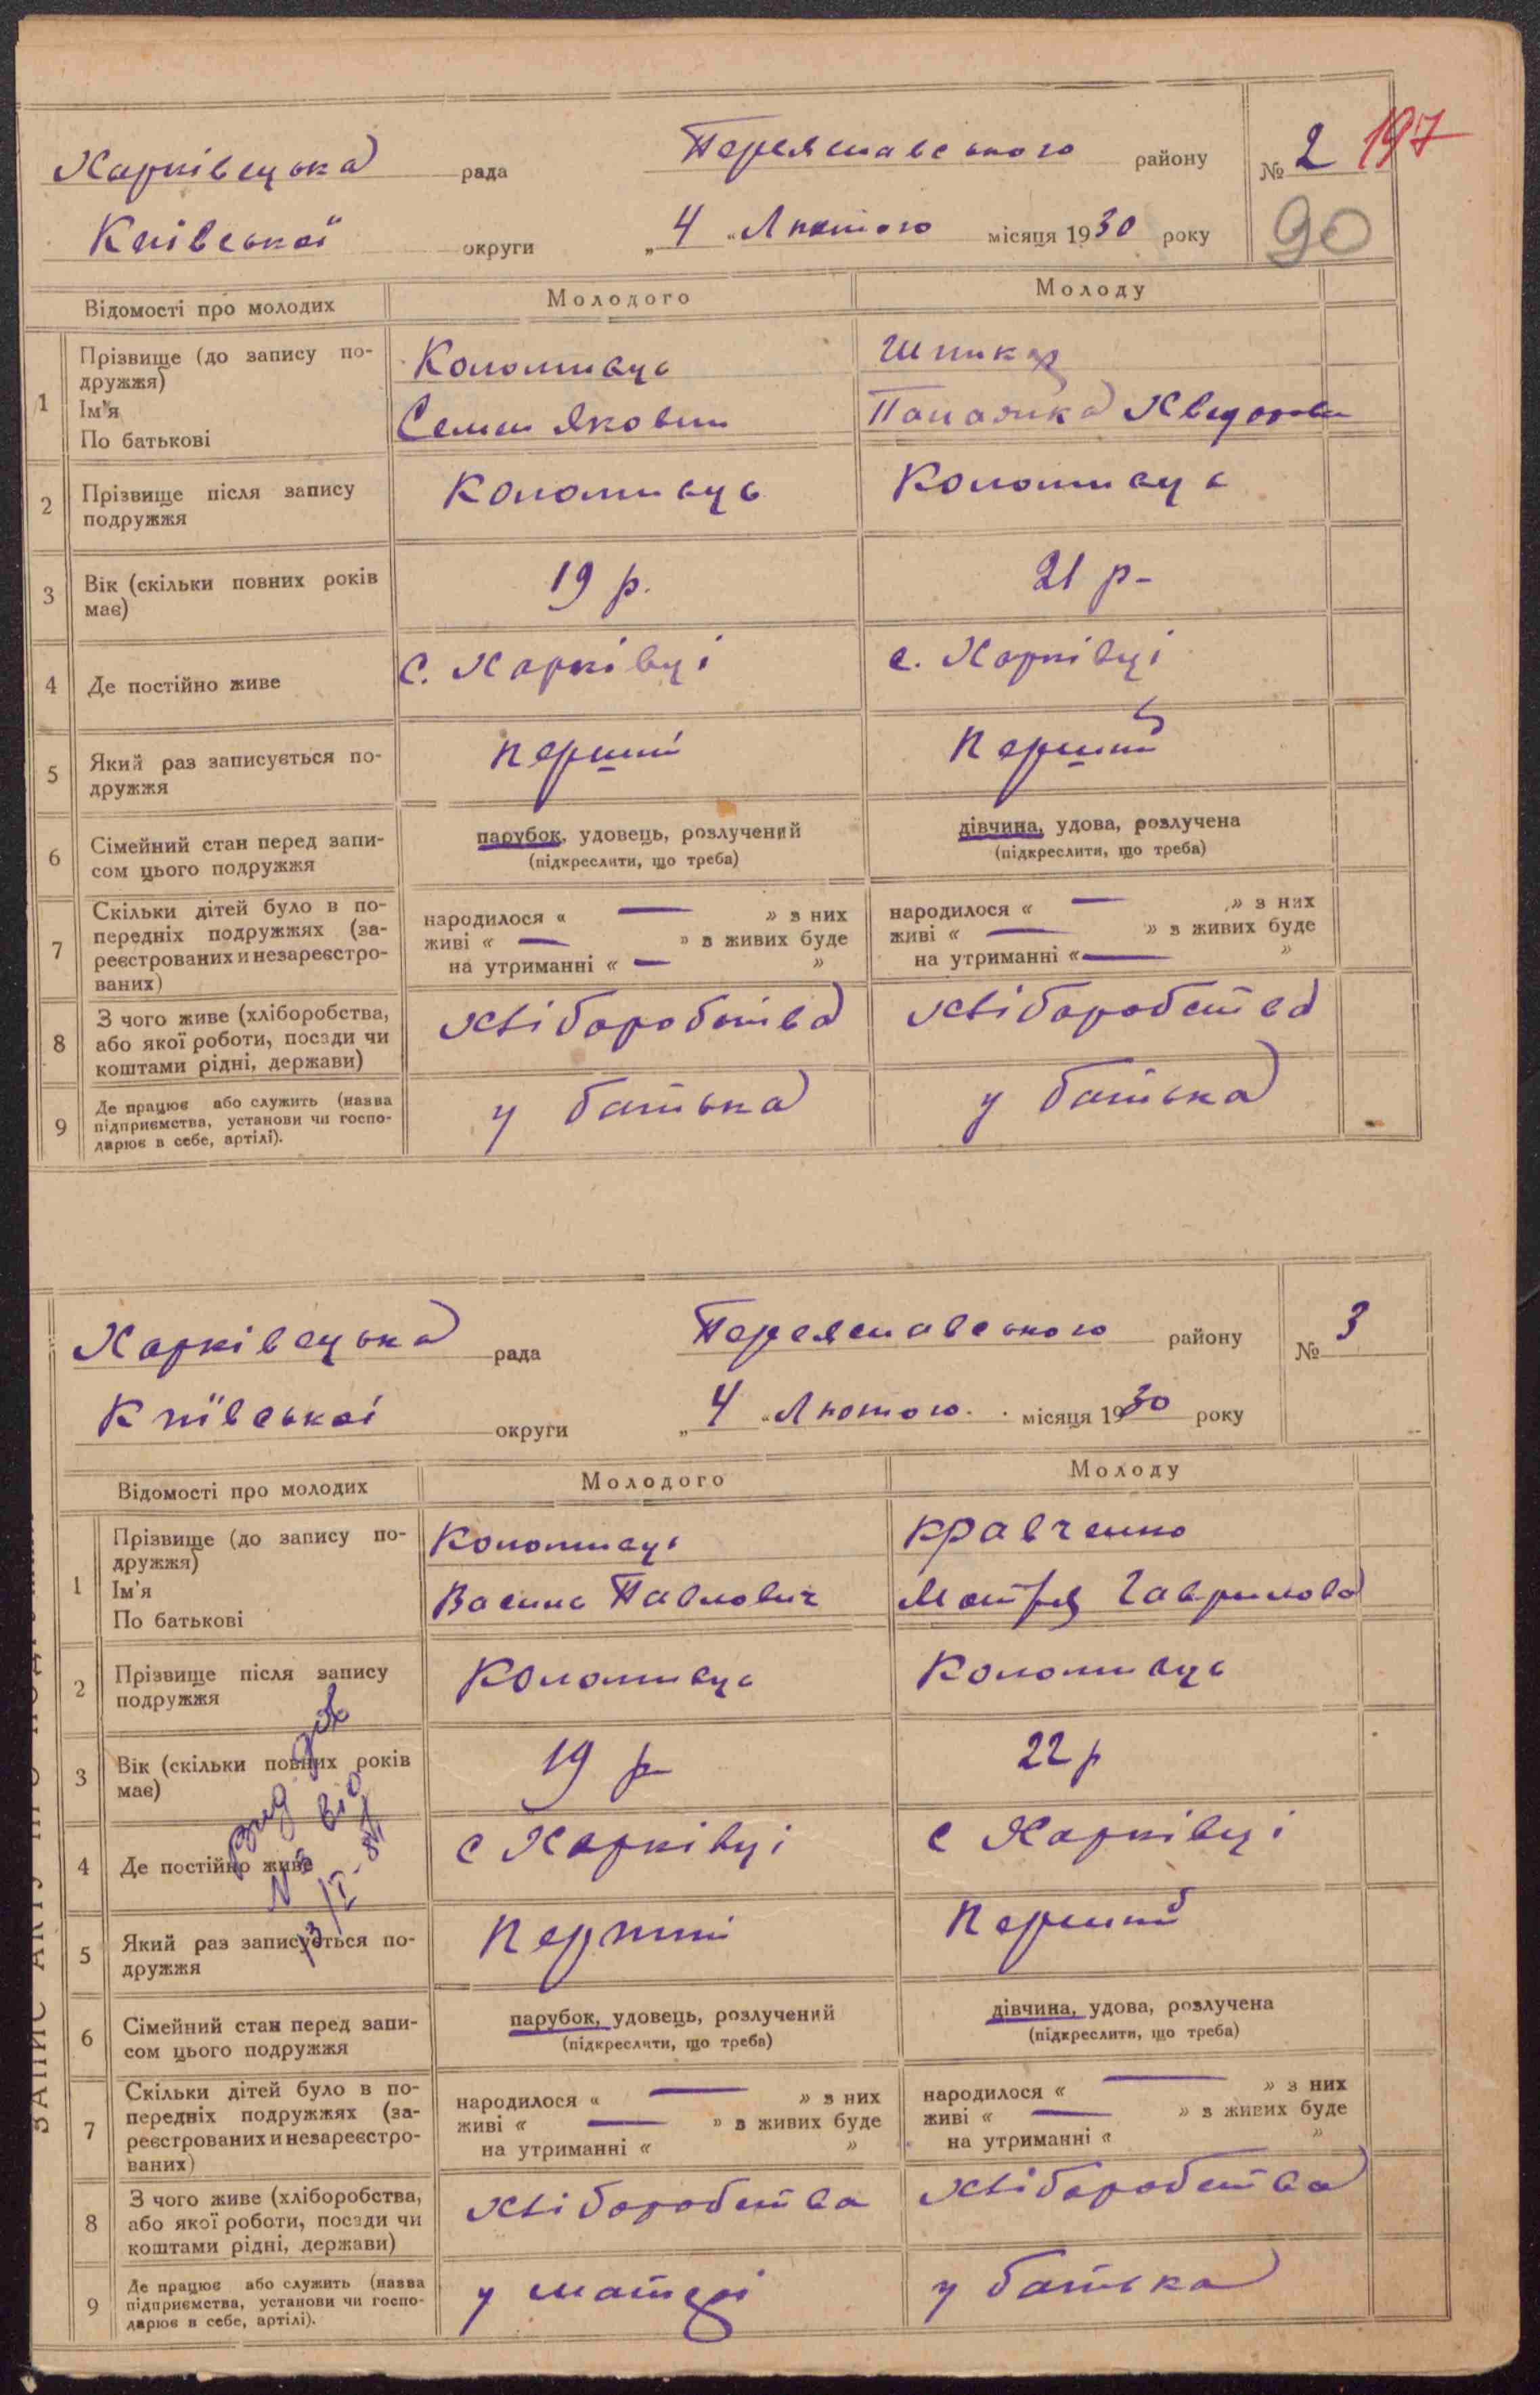 197
Харківецька рада Переяславського району № 2
Київської округи „4“ Лютого місяця 1930 року
90
Відомості про молодих Молодого Молоду
1 Прізвище (до запису подружжя) Коломиець
Ім'я По батькові Семен Якович Хведорова
2 Прізвище після запису подружжя Коломиець Коломиець
3 Вік (скільки повних років має) 19 р. 21 р-
4 Де постійно живе С. Харківці с. Харківці
5 Який раз записується подружжя перший перший
6 Сімейний стан перед записом цього подружжя парубок, удовець, розлучений дівчина, удова, розлучена
(підкреслити, що треба) (підкреслити, що треба)
7 Скільки дітей було в попередніх подружжях (зареєстрованих и незареєстрованих)
народилося « — » з них народилося « — » з них
живі « — » з живих буде живі « — » з живих буде
на утриманні « — » на утриманні « — »
8 З чого живе (хліборобства, або якої роботи, посади чи коштами рідні, держави) хліборобства хліборобства
9 Де працює або служить (назва підприємства, установи чи господарює в себе, артілі). у батька у батька
Харківецька рада Переяславського району № 3
Київської округи „4“ Лютого місяця 1930 року
Відомості про молодих Молодого Молоду
1 Прізвище (до запису подружжя) Коломиець Кравченко
Ім'я По батькові Василь Павлович Мотря Гаврилова
2 Прізвище після запису подружжя Коломиець Коломиець
3 Вік (скільки повних років має) 19 р 22 р
4 Де постійно живе с Харківці с Харківці
5 Який раз записується подружжя перший перший
6 Сімейний стан перед записом цього подружжя парубок, удовець, розлучений дівчина, удова, розлучена
(підкреслити, що треба) (підкреслити, що треба)
7 Скільки дітей було в попередніх подружжях (зареєстрованих и незареєстрованих)
народилося « — » з них народилося « — » з них
живі « — » з живих буде живі « — » з живих буде
на утриманні « » на утриманні « »
8 З чого живе (хліборобства, або якої роботи, посади чи коштами рідні, держави) хліборобства хліборобства
9 Де працює або служить (назва підприємства, установи чи господарює в себе, артілі). у матері у батька